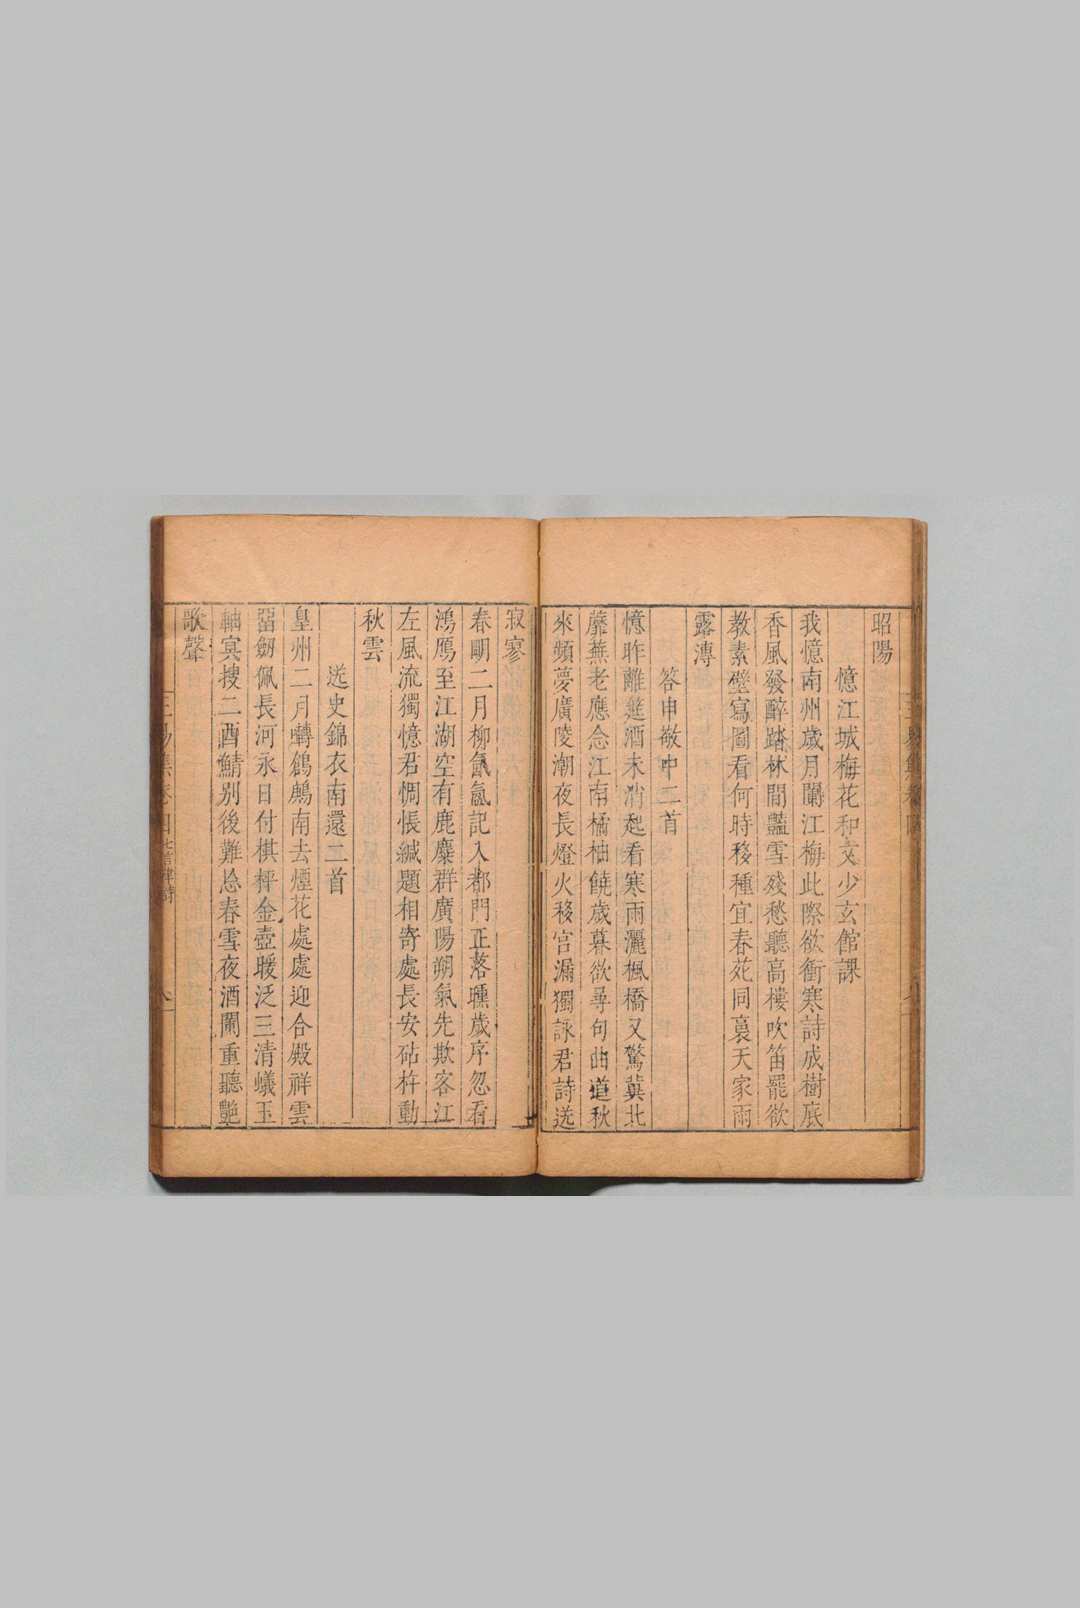 昭陽
憶江城梅花和文少玄館課
我憶南州歲月闌江梅此際欲衝寒詩成樹底
香風發醉踏林間豔雪殘愁聽高樓吹笛罷欲
教素壁寫圖看何時移種宜春苑同裛天家雨
露漙
答申敬中二首
憶昨離筵酒未消起看寒雨灑楓橋又驚冀北
蘼蕪老應念江南橘柚饒歲暮欲尋句曲道秋
來頻夢廣陵潮夜長燈火移宮漏獨詠君詩送
寂寥
春明二月柳氤氳記入都門正落曛歲序忽看
鴻鴈至江湖空有鹿麋群廣陽朔氣先欺客江
左風流獨憶君惆悵緘題相寄處長安砧杵動
秋雲
送史錦衣南還二首
皇州二月囀鶬鷓南去煙花處處迎合殿祥雲
留劒佩長河永日付棋枰金壺暖泛三清蟻玉
軸冥搜二酉鯖別後難忘春雪夜酒闌重聽艶
歌聲
三易集卷四 七言律詩 八